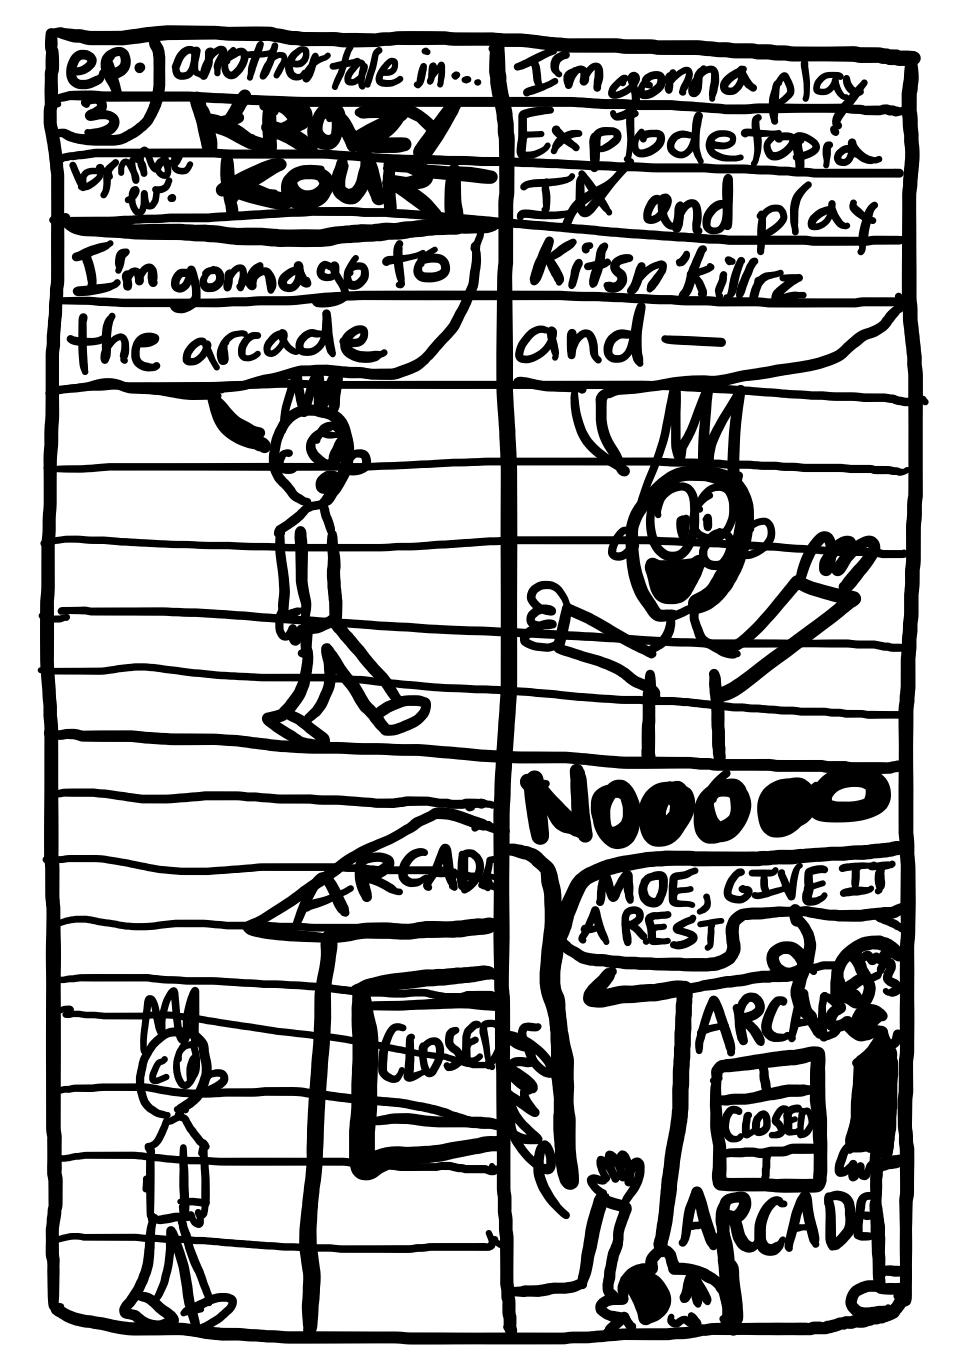 ep. 3
another tale in...
KRAZY
KOURT
I'm gonna go to
the arcade
I'm gonna play
Explodetopia
IX and play
Kitsn'killrz
and —
ARCADE
CLOSED
NOOOOO
MOE, GIVE IT
A REST
ARCADE
CLOSED
ARCADE